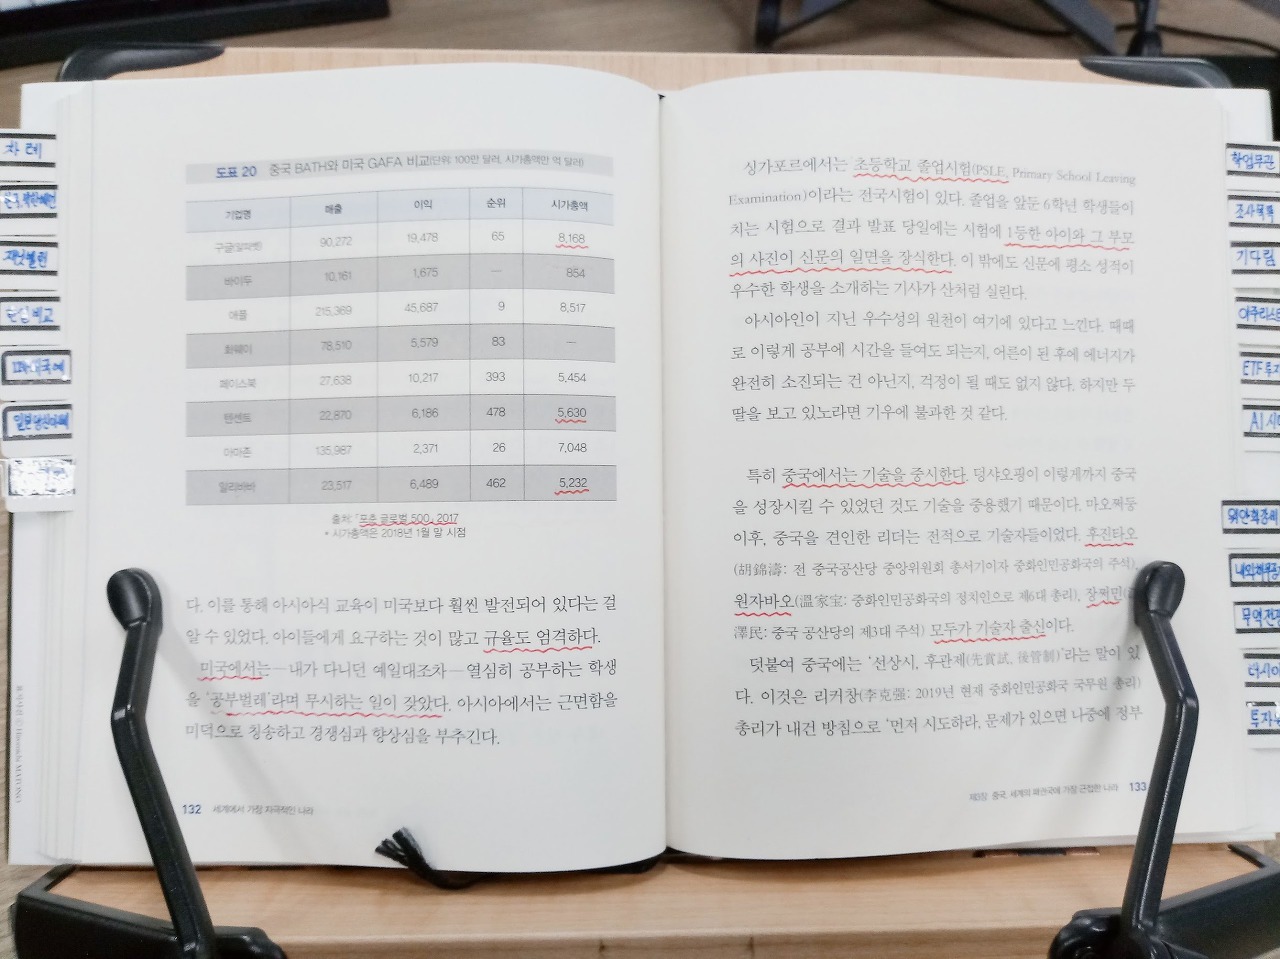 도표 20 중국 BATH와 미국 GAFA 비교(단위: 100만 달러, 시가총액만 억 달러)
기업명 매출 이익 순위 시가총액
구글(알파벳) 90,272 19,478 65 8,168
바이두 10,161 1,675 — 854
애플 215,369 45,687 9 8,517
화웨이 78,510 5,579 83 —
페이스북 27,638 10,217 393 5,454
텐센트 22,870 6,186 478 5,630
아마존 135,987 2,371 26 7,048
알리바바 23,517 6,489 462 5,232
출처: 「포춘 글로벌 500」 2017
* 시가총액은 2018년 1월 말 시점
다. 이를 통해 아시아식 교육이 미국보다 훨씬 발전되어 있다는 걸
알 수 있었다. 아이들에게 요구하는 것이 많고 규율도 엄격하다.
미국에서는—내가 다니던 예일대조차—열심히 공부하는 학생
을 '공부벌레'라며 무시하는 일이 잦았다. 아시아에서는 근면함을
미덕으로 칭송하고 경쟁심과 향상심을 부추긴다.
132 세계에서 가장 자극적인 나라
싱가포르에서는 초등학교 졸업시험(PSLE, Primary School Leaving
Examination)이라는 전국시험이 있다. 졸업을 앞둔 6학년 학생들이
치는 시험으로 결과 발표 당일에는 시험에 1등한 아이와 그 부모
의 사진이 신문의 일면을 장식한다. 이 밖에도 신문에 평소 성적이
우수한 학생을 소개하는 기사가 산처럼 실린다.
아시아인이 지닌 우수성의 원천이 여기에 있다고 느낀다. 때때
로 이렇게 공부에 시간을 들여도 되는지, 어른이 된 후에 에너지가
완전히 소진되는 건 아닌지, 걱정이 될 때도 없지 않다. 하지만 두
딸을 보고 있노라면 기우에 불과한 것 같다.
특히 중국에서는 기술을 중시한다. 덩샤오핑이 이렇게까지 중국
을 성장시킬 수 있었던 것도 기술을 중용했기 때문이다. 마오쩌둥
이후, 중국을 견인한 리더는 전적으로 기술자들이었다. 후진타오
(胡錦濤: 전 중국공산당 중앙위원회 총서기이자 중화인민공화국의 주석),
원자바오(溫家宝: 중화인민공화국의 정치인으로 제6대 총리), 장쩌민(
澤民: 중국 공산당의 제3대 주석) 모두가 기술자 출신이다.
덧붙여 중국에는 '선상시, 후관제(先賞試, 後管制)'라는 말이 있
다. 이것은 리커창(李克强: 2019년 현재 중화인민공화국 국무원 총리)
총리가 내건 방침으로 '먼저 시도하라, 문제가 있으면 나중에 정부
제3장 중국, 세계의 패권국에 가장 근접한 나라 133
차례
학업무관
기다림